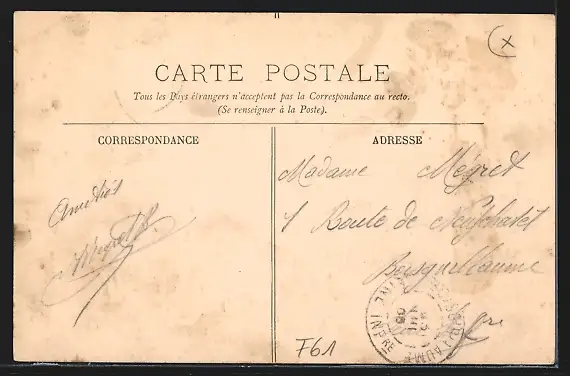 CARTE POSTALE
Tous les Pays étrangers n'acceptent pas la Correspondance au recto.
(Se renseigner à la Poste).
CORRESPONDANCE
ADRESSE
Amitiés
Madame Mégret
1 Route de Neufchatel
Boisguillaume
F61